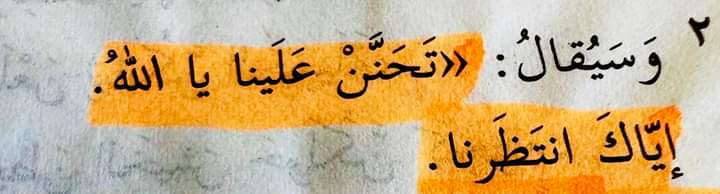 ٢ وَسَيُقالُ: «تَحَنَّنْ عَلَينا يا اللهُ.
إيّاكَ انتَظَرنا.